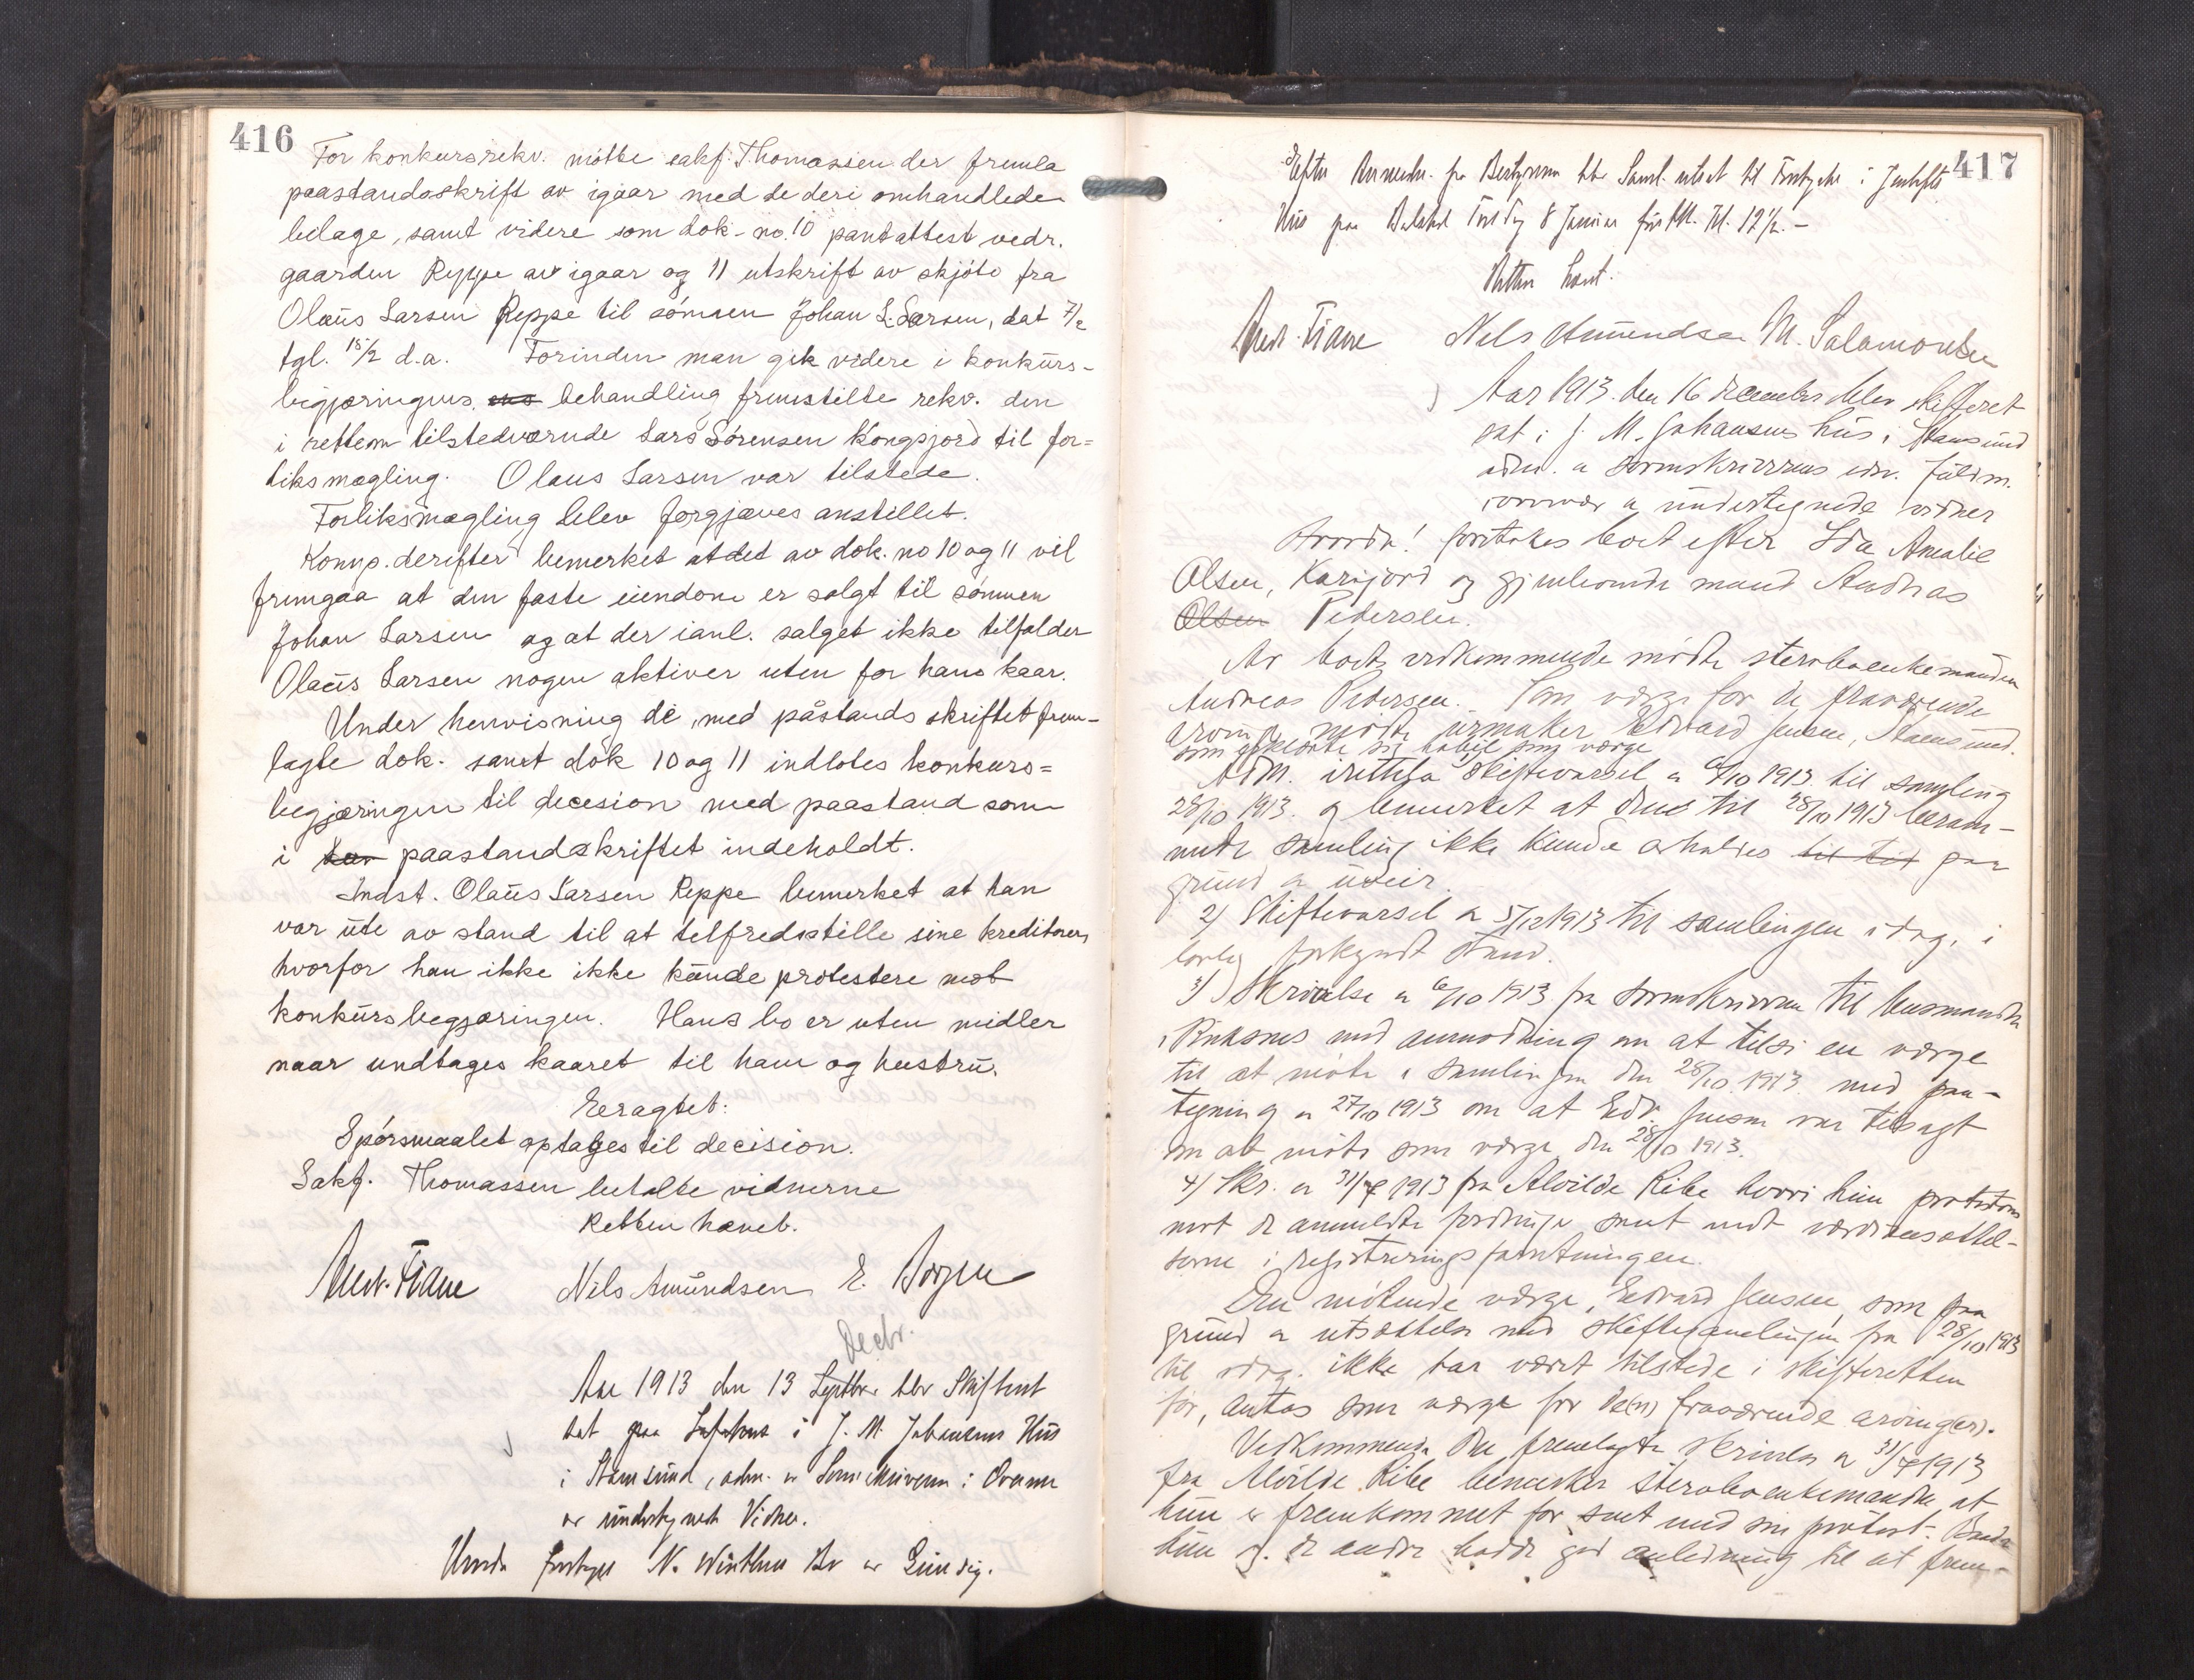 416
For konkursrekv. møtte sakf. Thomassen der fremla
paastandsskrift av igaar med de deri omhandlede
bilage, samt videre som dok. no. 10 pantattest vedr.
gaarden Reppe av igaar og 11 utskrift av skjøte fra
Olaus Larsen Reppe til sønnen Johan L. Larsen, dat 7/2
tgl. 15/2 d.a. Forinden man gik videre i konkurs-
begjæringens behandling fremstilte rekv. den
i retten tilstedværende Lars Sørensen Kongsjord til for=
liksmægling. Olaus Larsen var tilstede.
Forliksmægling blev forgjæves anstillet.
Komp. derefter bemerket at det av dok. no 10 og 11 vil
fremgaa at den faste eiendom er solgt til sønnen
Johan Larsen og at der ianl. salget ikke tilfalder
Olaus Larsen nogen aktiver uten for hans kaar.
Under henvisning de, med påstandsskriftet frem-
lagte dok. samt dok 10 og 11 indlotes konkurs=
begjæringen til decesion med paastand som
i paastandskriftet indeholdt.
Indst. Olaus Larsen Reppe bemerket at han
var ute av stand til at telfredsstille sine kreditorer,
hvorfor han ikke ikke kunde protestere mot
konkursbegjæringen. Hans bo er uten midler
naar undtages kaaret til ham og hustru.
Eragtet:
Spørsmaalet optages til decision.
Sakf. Thomassen betalte vidnerne
Retten hævet.
Andr. Fiane Nils Amundsen E.
Decbr.
Aar 1913 den 13 Septbr. blev Skifteret
sat paa i J. M. Johansens Hus
i Stamsund, adm. av Sorenskriveren i Overvær
av undertegnede Vidner.
Hvorda foretages N. Winthers Bo av Gimsøy.
417
Efter Anmodn. fra Bestyreren blev Saml. utsat til Foretagelse i
Hus paa Balstad Torsdag 8 Januar førstk. Kl. 12 1/2. -
Retten hævet.
Andr. Fiane Nils Amundsen M. Salamonsen
Aar 1913 den 16 december blev skifteret
sat i J. M. Johansens hus i Stamsund
adm. av sorenskriverens edsv. fuldm.
i overvær av undertegnede vidner
Hvorda! foretokes boet efter Ida Amalie
Olsen, Karijord og gjenlevende mand Andreas
Olsen Pedersen.
Av boets vedkommende møtte sterboenkemanden
Andreas Pedersen. Som værge for de fraværende
arvinger møtte urmaker Edvard Jensen, Stamsund.
som erklærte sig habil som værge
Adm. irettela skiftevarsel av 6/10 1913 til samling
28/10 1913. og bemerket at den til 28/10 1913 beram-
mede samling ikke kunde avholdes til tid paa
grund av uveir.
2) Skiftevarsel av 5/12 1913 til samlingen idag, i
lovlig forkyndt stand.
3) Skrivelse av 6/10 1913 fra sorenskriveren til lensmanden
i Buksnes med anmodning om at tilsi en værge
til at møte i samlingen den 28/10 1913 med paa-
tegning av 27/10 1913 om at Edv. Jensen var tilsagt
om at møte som værge den 28/10 1913.
4) Skr. av 31/7 1913 fra Alvilde Ribe hvori hun protesterer
mot de anmeldte fordringer samt mot værdiansættel-
serne i registreringsforretningen.
Den møtende værge, Edvard Jensen, som paa
grund av utsættelse med skiftesamlingen fra 28/10 1913
til idag. ikke har været tilstede i skifteretten
før, antas som værge for de(n) fraværende arving(er).
Vedkommende den fremlagte skrivelse av 31/7 1913
fra Alvilde Ribe bemerker sterboenkemanden at
hun er fremkommet for sent med sin protest. Baade
hun og de andre hadde god anledning til at frem-